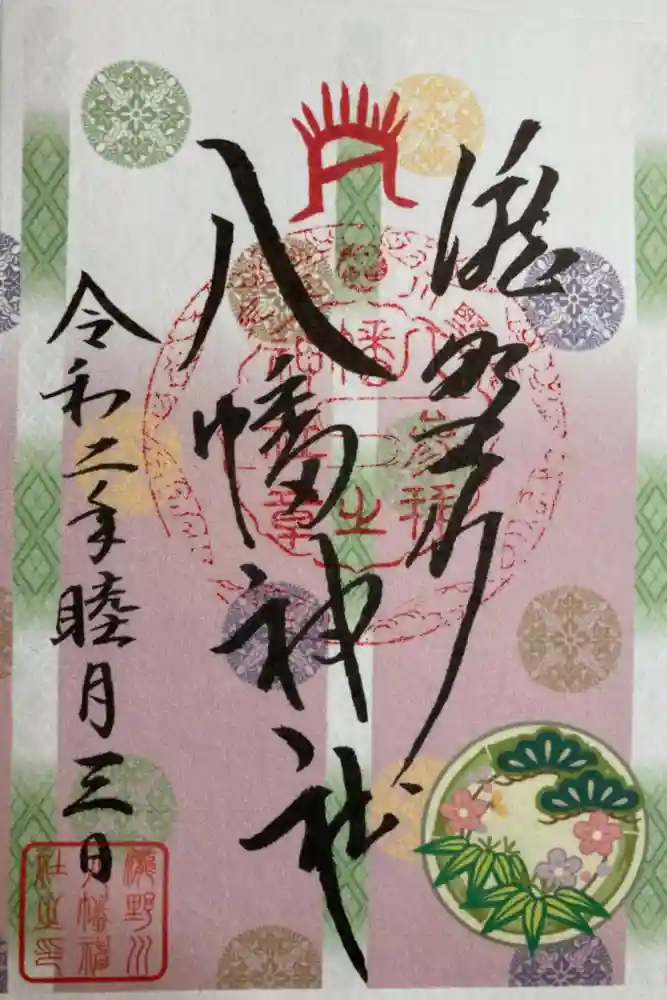 滝野川
八幡神社
令和二年睦月三日
滝野川
八幡神
社之印